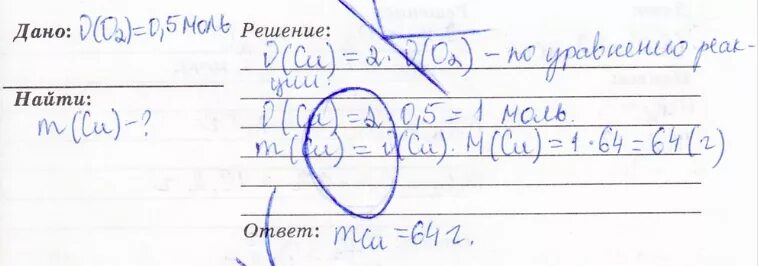 Дано: ν(O₂)=0,5 моль
Найти:
m(Cu)-?
Решение:
ν(Cu)=2·ν(O₂) – по уравнению реак-
ции:
ν(Cu)=2·0,5=1 моль.
m(Cu)=ν(Cu)·M(Cu)=1·64=64(г)
Ответ: mCu=64г.